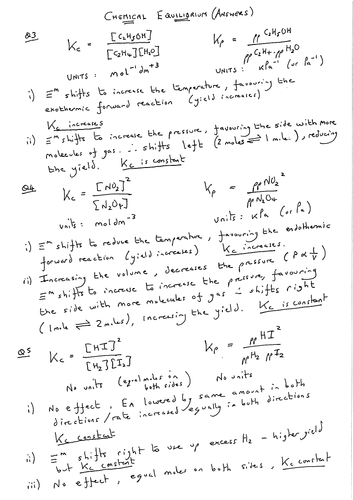 CHEMICAL EQUILIBRIUM (ANSWERS)
Q3 Kc = [C2H5OH] / [C2H4][H2O] Kp = pp C2H5OH / pp C2H4 . pp H2O
UNITS: mol⁻¹ dm⁺³ UNITS: kPa⁻¹ (or Pa⁻¹)
i) Ξᵐ shifts to increase the temperature, favouring the
exothermic forward reaction (yield increases)
Kc increases
ii) Ξᵐ shifts to increase the pressure, favouring the side with more
molecules of gas ∴ shifts left (2 moles ⇌ 1 mole), reducing
the yield. Kc is constant
Q4 Kc = [NO2]² / [N2O4] Kp = pp NO2² / pp N2O4
units: mol dm-3 units: kPa (or Pa)
i) Ξᵐ shifts to reduce the temperature, favouring the endothermic
forward reaction (yield increases) Kc increases.
ii) Increasing the volume, decreases the pressure (P ∝ 1/V)
Ξᵐ shifts to increase to increase the pressure, favouring
the side with more molecules of gas ∴ shifts right
(1 mole ⇌ 2 moles), increasing the yield. Kc is constant
Q5 Kc = [HI]² / [H2][I2] Kp = pp HI² / pp H2 pp I2
No units (equal moles on both sides) No units
i) No effect, EA lowered by same amount in both
directions / rate increased equally in both directions
Kc constant
ii) Ξᵐ shifts right to use up excess H2 – higher yield
but Kc constant
iii) No effect, equal moles on both sides, Kc constant